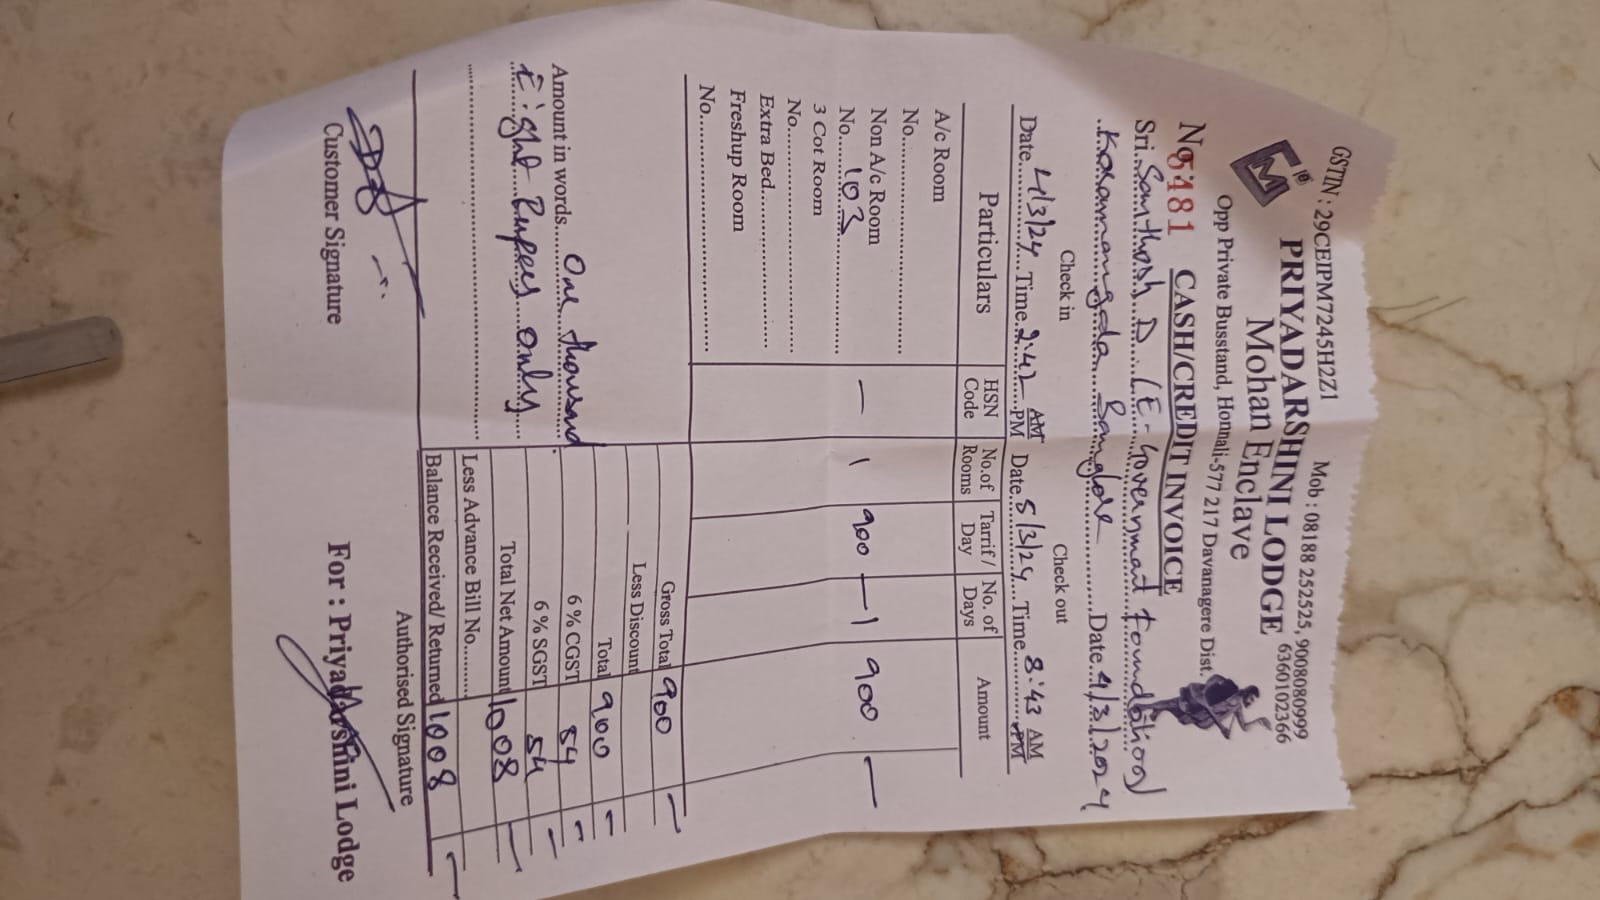 GSTIN : 29CEIPM7245H2Z1 Mob : 08188 252525, 9008080999
6360102366
PRIYADARSHINI LODGE
Mohan Enclave
Opp Private Busstand, Honnali-577 217 Davanagere Dist
No. 5481 CASH/CREDIT INVOICE
Sri. Santhosh D. (E-Government Foundation)
Kasanmangala Banglore Date. 4/3/2024
Check in Check out
Date. 4/3/24 Time. 2:42 AM PM Date. 5/3/24 Time. 8:43 AM PM
Particulars HSN Code No.of Rooms Tarif / Day No. of Days Amount
A/c Room
No.
Non A/c Room
No. 103 — 1 900 — 1 900 —
3 Cot Room
No.
Extra Bed
Freshup Room
No.
Gross Total 900 —
Less Discount
Total 900 —
6 % CGST 54 —
6 % SGST 54 —
Total Net Amount 1008 —
Less Advance Bill No.
Balance Received/ Returned 1008 —
Amount in words One thousand
Eight Rupees only
Authorised Signature
Customer Signature For : Priyadarshini Lodge